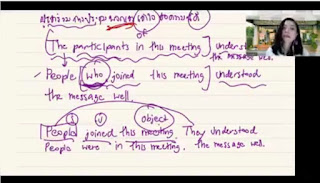 of
(The participants in this meeting) understood
the message well.
People who joined this meeting understood
the message well.
S V object
People joined this meeting. They understood
People were in this meeting. the message well.